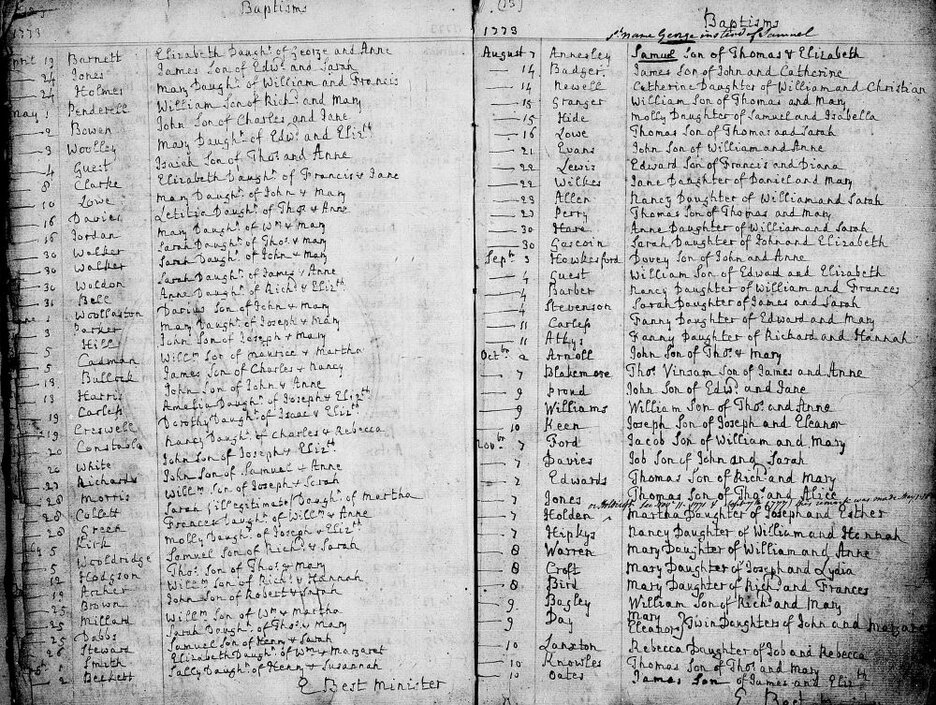 Baptisms
1773
April 13 Barnett Elizabeth Daught. of George and Anne
24 Jones James Son of Edwd. and Sarah
24 Holmes Mary Daught. of William and Francis
May 1 Penderell William Son of Richd. and Mary
2 Bowen John Son of Charles and Jane
3 Woolley Mary Daught. of Edwd. and Elizth.
4 Guest Isaiah Son of Thos. and Anne
8 Clarke Elizabeth Daught. of Francis & Jane
10 Lowe Mary Daught. of John & Mary
16 Davies Letitia Daught. of Thos. & Anne
16 Jordan Mary Daught. of Wm. & Mary
30 Walker Sarah Daught. of Thos. & Mary
30 Walker Sarah Daught. of John & Mary
30 Woldon Sarah Daught. of James & Anne
31 Bell Anne Daught. of Richd. & Elizth.
1 Woollaston Darius Son of John & Mary
3 Parker Mary Daught. of Joseph & Mary
Hill John Son of Joseph & Mary
5 Cadman Willm. Son of Maurice & Martha
5 Bullock James Son of Charles & Nancy
13 Harris John Son of John & Anne
13 Carless Amelia Daught. of Joseph & Elizth.
19 Creswell Dorothy Daught. of Isaac & Elizth.
19 Constable Nancy Daught. of Charles & Rebecca
20 White John Son of Joseph & Elizth.
20 Richards John Son of Samuel & Anne
27 Morris Willm. Son of Joseph & Sarah
28 Collett Sarah illegitimate Daught. of Martha
28 Green Frances Daught. of Willm. & Anne
Kirk Molly Daught. of Joseph & Elizth.
5 Wooldridge Samuel Son of Richd. & Sarah
5 Hodgson Thos. Son of Thos. & Mary
12 Archer Willm. Son of Richd. & Hannah
19 Brown John Son of Robert & Sarah
25 Millard Willm. Son of Wm. & Martha
25 Dabbs Sarah Daught. of Thos. & Mary
26 Steward Samuel Son of Henry & Sarah
1 Smith Elizabeth Daught. of Wm. & Margaret
2 Beckett Sally Daught. of Henry & Susannah
E Best Minister
Baptisms
1773
name George instead of Samuel
August 7 Annesley Samuel Son of Thomas & Elizabeth
14 Badger James Son of John and Catherine
14 Newell Catherine Daughter of William and Christian
15 Granger William Son of Thomas and Mary
15 Hide Molly Daughter of Samuel and Isabella
16 Lowe Thomas Son of Thomas and Sarah
21 Evans John Son of William and Anne
22 Lewis Edward Son of Francis and Diana
22 Wilkes Jane Daughter of Daniel and Mary
23 Allen Nancy Daughter of William and Sarah
27 Perry Thomas Son of Thomas and Mary
30 Hare Anne Daughter of William and Sarah
30 Gascoin Sarah Daughter of John and Elizabeth
Septr. 3 Hawkesford Davey Son of John and Anne
4 Guest William Son of Edward and Elizabeth
4 Barber Nancy Daughter of William and Frances
4 Stevenson Sarah Daughter of James and Sarah
11 Carless Fanny Daughter of Edward and Mary
11 Athys Fanny Daughter of Richard and Hannah
Octbr. 2 Arnoll John Son of Thos. & Mary
7 Blakemore Thos. Vinsam Son of James and Anne
9 Proud John Son of Edwd. and Jane
9 Williams William Son of Thos. and Anne
10 Keen Joseph Son of Joseph and Eleanor
Novbr. 7 Ford Jacob Son of William and Mary
7 Davies Job Son of John and Sarah
7 Edwards Thomas Son of Richd. and Mary
7 Jones Thomas Son of Thos. and Alice
7 Holden Martha Daughter of Joseph and Esther
7 Hipkys Nancy Daughter of William and Hannah
8 Warren Mary Daughter of William and Anne
8 Croft Mary Daughter of Joseph and Lydia
8 Bird Mary Daughter of Richd. and Frances
9 Bagley William Son of Richd. and Mary
9 Day Mary Eleanor } Twin Daughters of John and Margaret
10 Lanxton Rebecca Daughter of Job and Rebecca
10 Knowles Thomas Son of Thos. and Mary
10 Oates James Son of James and Elizth.
E Best